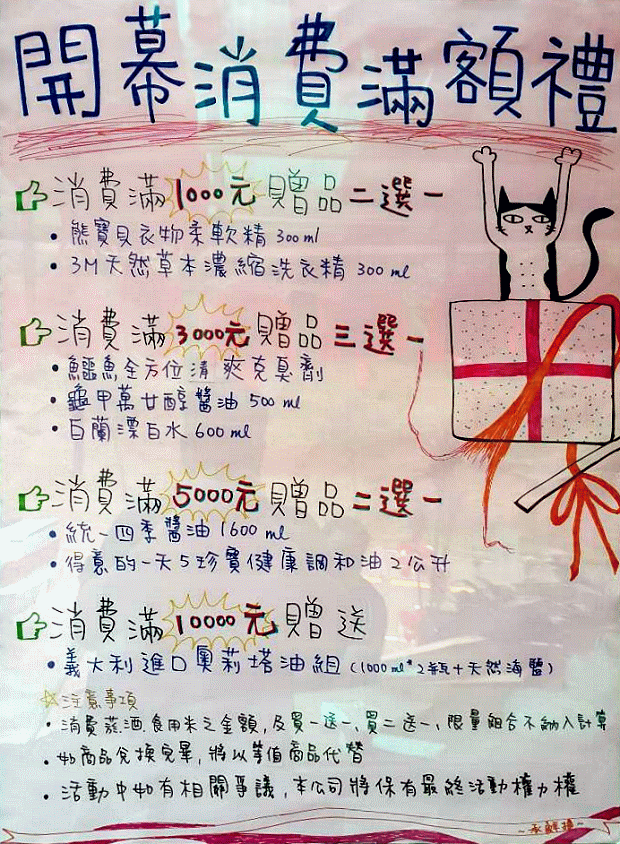 開幕消費滿額禮
消費滿1000元贈品二選一
• 熊寶貝衣物柔軟精 300ml
• 3M天然草本濃縮洗衣精 300ml
消費滿3000元贈品三選一
• 鱷魚全方位清爽克臭劑
• 龜甲萬甘醇醬油 500ml
• 白蘭漂白水 600ml
消費滿5000元贈品二選一
• 統一四季醬油 1600ml
• 得意的一天5珍寶健康調和油2公升
消費滿10000元贈送
• 義大利進口奧莉塔油組 (1000ml*2瓶+天然海鹽)
☆注意事項
• 消費菸.酒.食用米之金額,及買一送一、買二送一、限量組合不納入計算
• 如商品兌換完畢,將以等值商品代替
• 活動中如有相關爭議,本公司將保有最終活動權力權